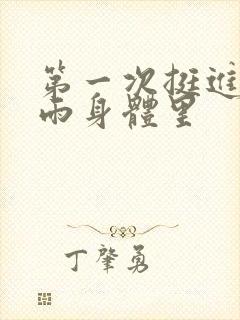 第一次挺進
雨身體里
丁肇勇